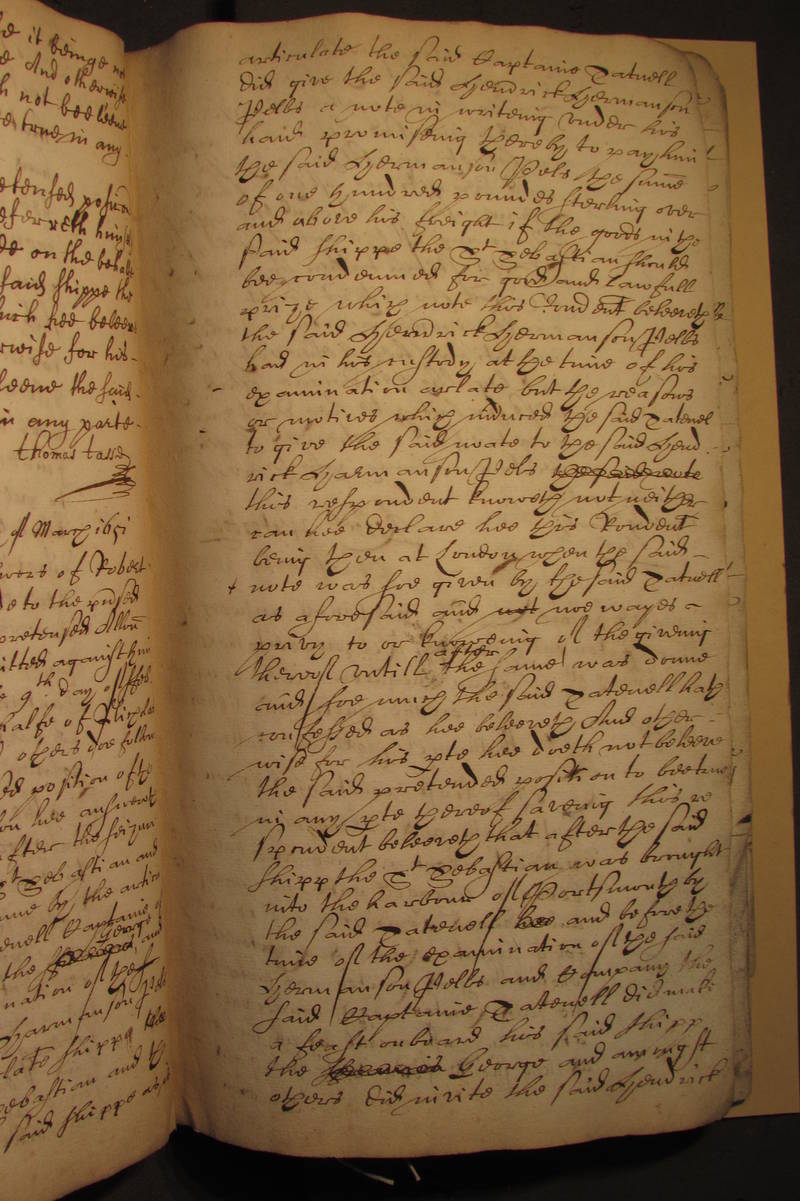 e it beinge not
e And otherwise
h not beeleeve
e true in any
etensed position
eferreth himse
de on the behalfe
said shippe the
hich hee beleeve
rwise for his
leeve the said
in any parte
Thomas Tasse
of March 1651
wers of Robert
de to the
pretensed Allon
itted against him
e 9th day of Feb
halfe of Philip
others doe follow
ed position of the
on hee answereth
after the seizure
St Sebastian and
me by the article
enell Captaine of
the George and
nation of the
Harmanson Pels
late shippe the
Sebastian and the
said shippe as
articulate the said Captaine Tatnell
did give the said Hendrick Hermanson
Pelbs a note in writeing under his
hand promiseing thereby to pay him
the said Hermanson Pels the summe
of one hundred poundes sterling over
and above his freight if the goods in the
said shippe the St Sebastian should
bee condemned for good and lawfull
prize which note this Rondent beleeveth
the said Hendrick Hermanson Pelbs
had in his custody at the time of his
examination arlate but the reasons
or motives which induced the said Tatenel
to give the said noate to the said Hend
rick Harmanson Pels the said note
this respondent knoweth not neither
can hee declare hee this Rondent
being then at London when the said
note was soe given by the said Tatnell
as aforesaid and not noe wayes
privy to or knoweing of the giveing
thereof untill after the same was donne
and soe much the said Tatenell hath
confessed as hee beleeveth And other
wise for his pte hee doeth not beleeve
the said pretended position to bee true
in any pte thereof saveing this re
spondent beleeveth that after the said
shipp the St Sebastian was brought
into the harbour of Portsmouth by
the said Tatenell hee and before the
time of the examination of the said
Hermanson Pelbs and Company the
said Captaine Tatenell did make
a feast onboard his said shipp
the George and amongst
others did invite the said Hendrick